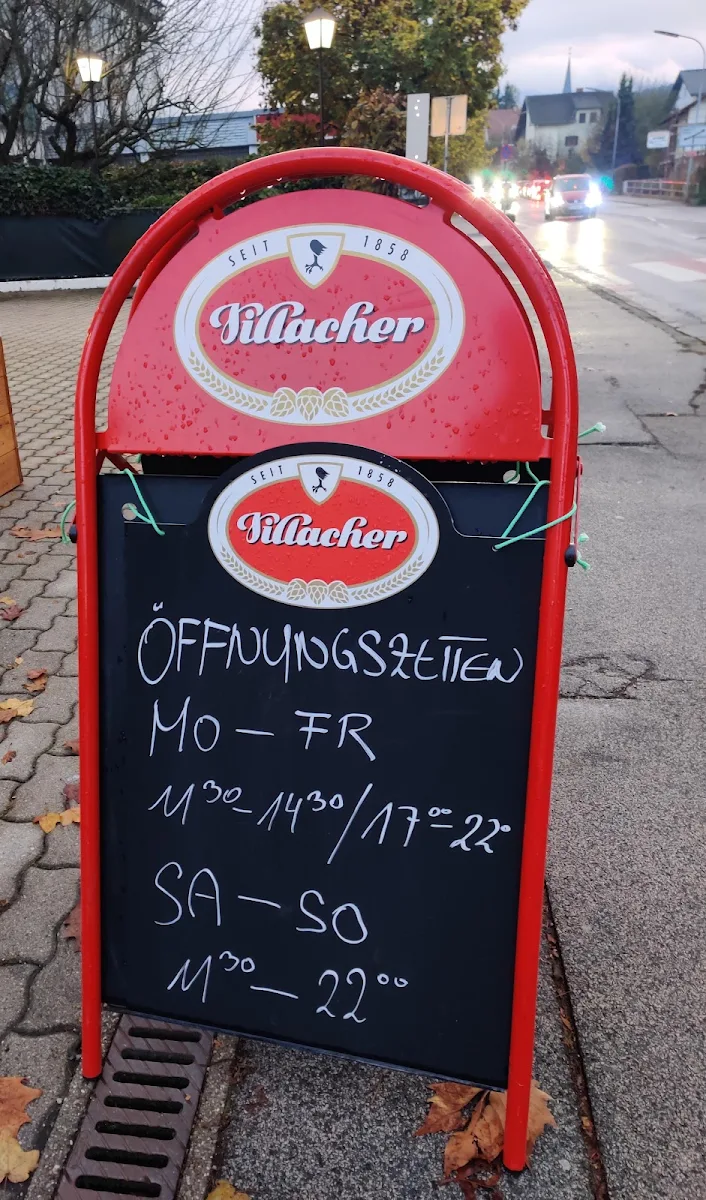 SEIT 1858
Villacher
SEIT 1858
Villacher
ÖFFNUNGSZEITEN
MO – FR
11³⁰–14³⁰/17⁰⁰–22⁰
SA – SO
11³⁰ – 22⁰⁰